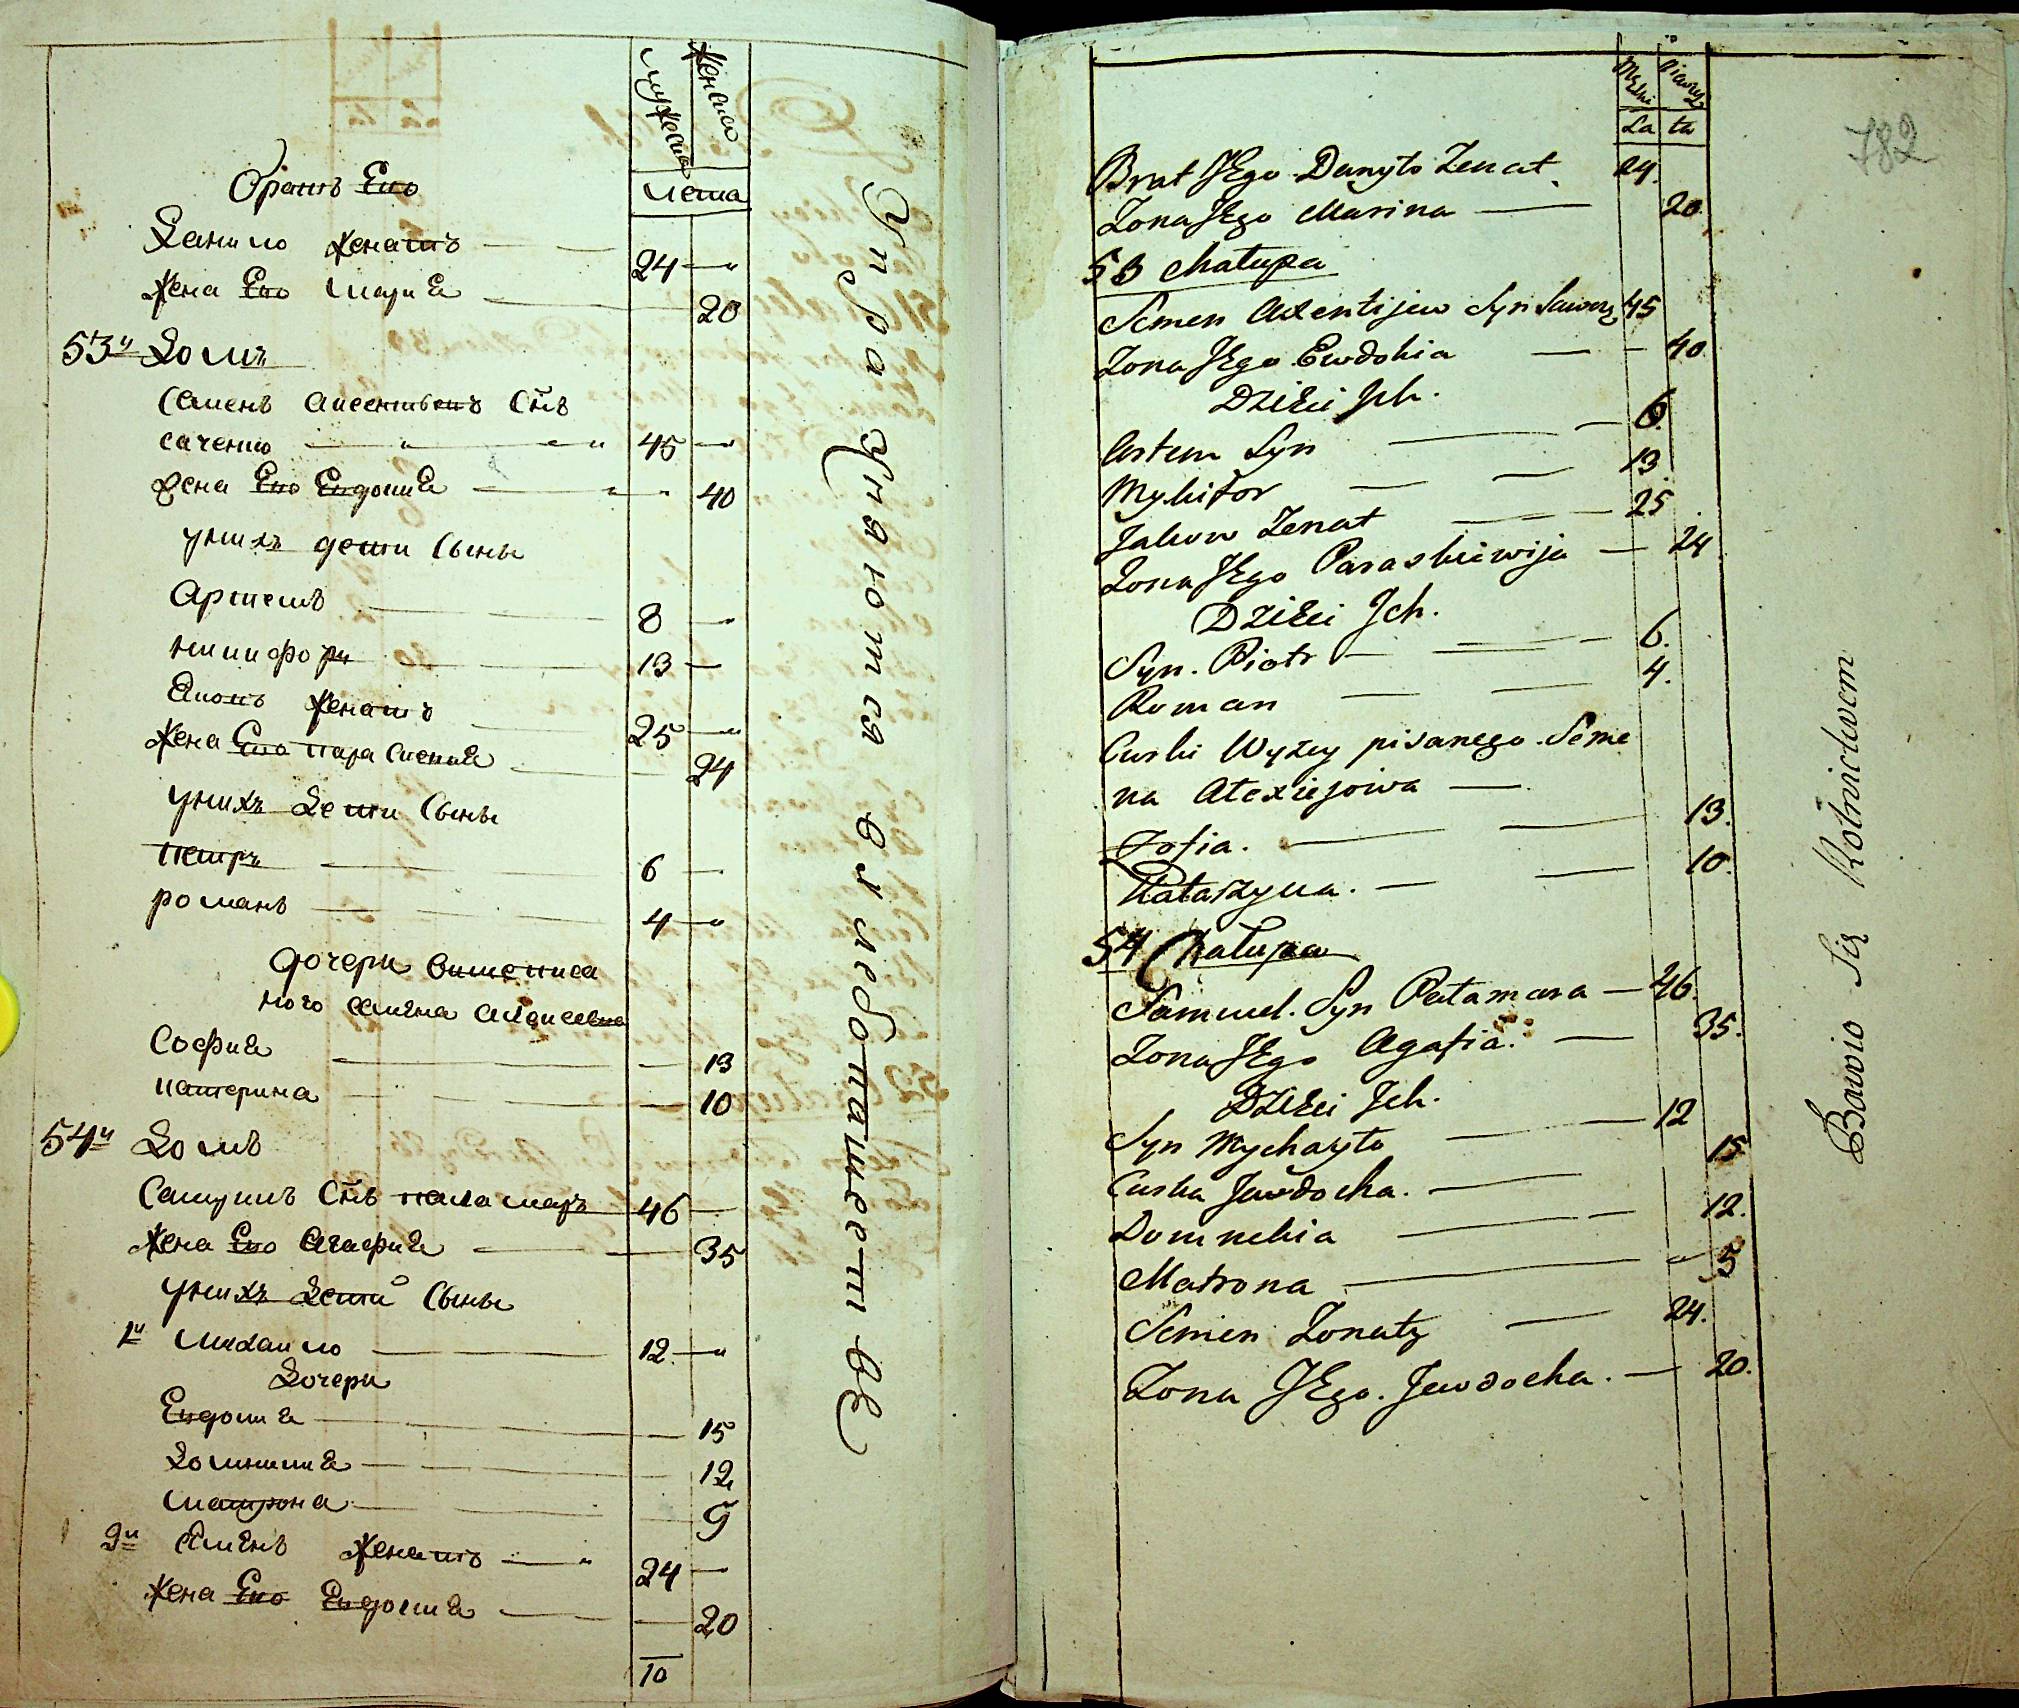 мужеска
женска
лета
Братъ Его
Данило женатъ 24
жена Его Мария 20
53й Домъ
Семенъ Аксентьевъ Снъ
саченко 45
жена Его Евдокия 40
у нихъ дети Сыны
Артемъ 8
Никифоръ 13
Яковъ женатъ 25
жена Его параскевия 24
у нихъ Дети Сыны
петръ 6
романъ 4
дочери вишеписа
ного Семена Алексеевна
София 13
катерина 10
54й Домъ
Самуилъ Снъ паламаръ 46
жена Его Агафия 35
у нихъ Дети Сыны
1й михаило 12
Дочери
Евдокия 15
Домникия 12
матрона 5
2й Семенъ женатъ 24
жена Его Евдокия 20
10
упражняются в хлебопашестве
782
Męzki
La ta
Brat JEgo Danyło Żenat 24.
Żona JEgo Marina 20.
53 Chałupa
Semen Axentijew Syn 45
Żona JEgo Ewdokia 40
Dzieci Jch.
Artem Syn 6.
Mykifor 13
Jakow Żenat 25
Żona JEgo Paraskiewija 24
Dzieci Jch.
Syn. Piotr 6.
Roman 4.
Curki Wyzey pisanego Seme
na Alexiejowa
Zofia. 13.
Katarzyna. 10.
54 Chałupa
Samuel. Syn Pałamara 46.
Żona JEgo Agafia. 35.
Dzieci Jch.
Syn Mychayło 12
Curka Jewdocha. 15
Domnekia 12.
Matrona 5
Semen Żonaty 24.
Żona JEgo. Jewdocha. 20.
Bawio Się Rolnictwem